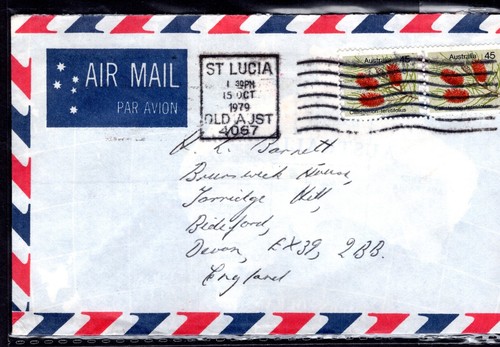 AIR MAIL
PAR AVION
ST LUCIA
1 PM
15 OCT
1979
QLD AUST
4067
Australia 45
Australia 45
Barnett
Brunswick House,
Torridge Hill,
Bideford,
Devon, EX39, 2BB.
England